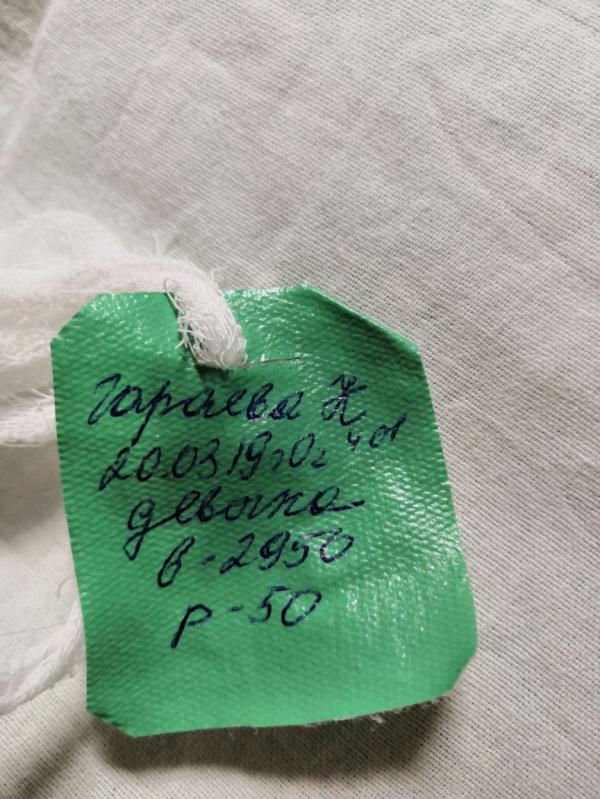 Гараева Н
20.03.19г.
девочка
в-2950
р-50